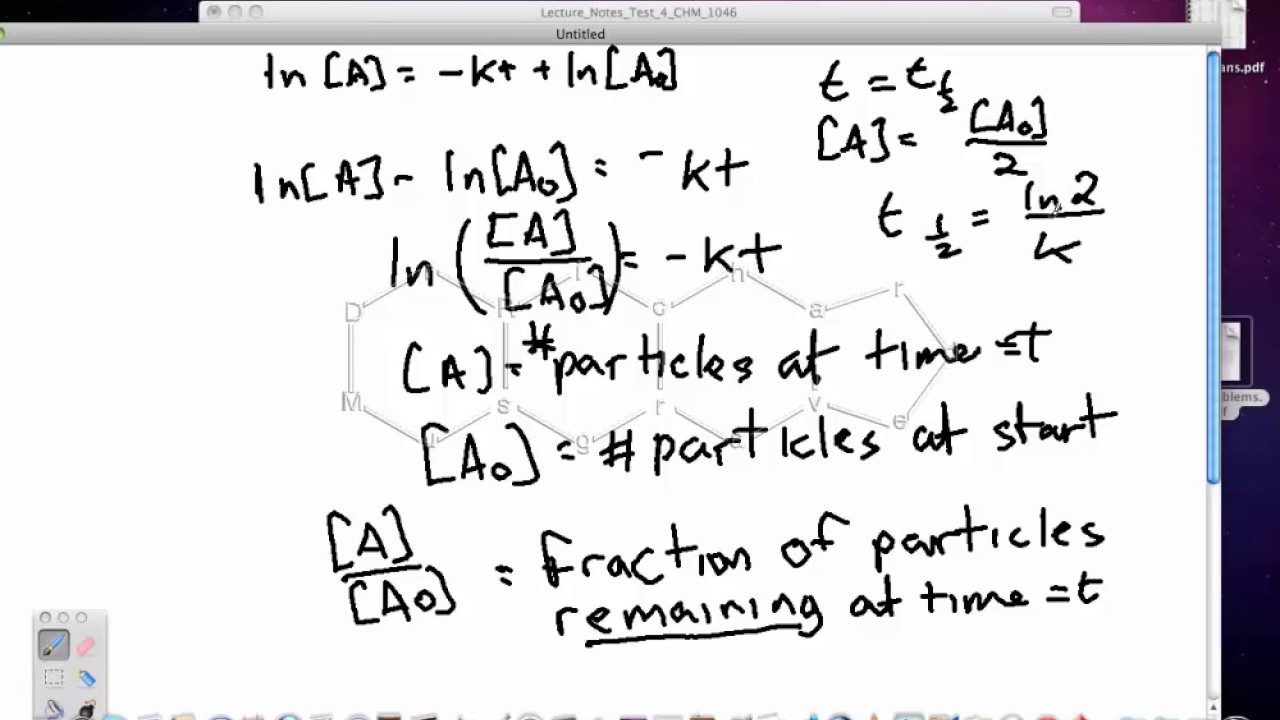 Lecture_Notes_Test_4_CHM_1046
Untitled
ans.pdf
ln [A] = -kt + ln[A₀]
t = t ½
[A] = [A₀]/2
ln[A] - ln[A₀] = -kt
t ½ = ln 2/k
ln ([A]/[A₀]) = -kt
[A] = # particles at time = t
[A₀] = # particles at start
blems.
f
[A]/[A₀] = fraction of particles
remaining at time = t